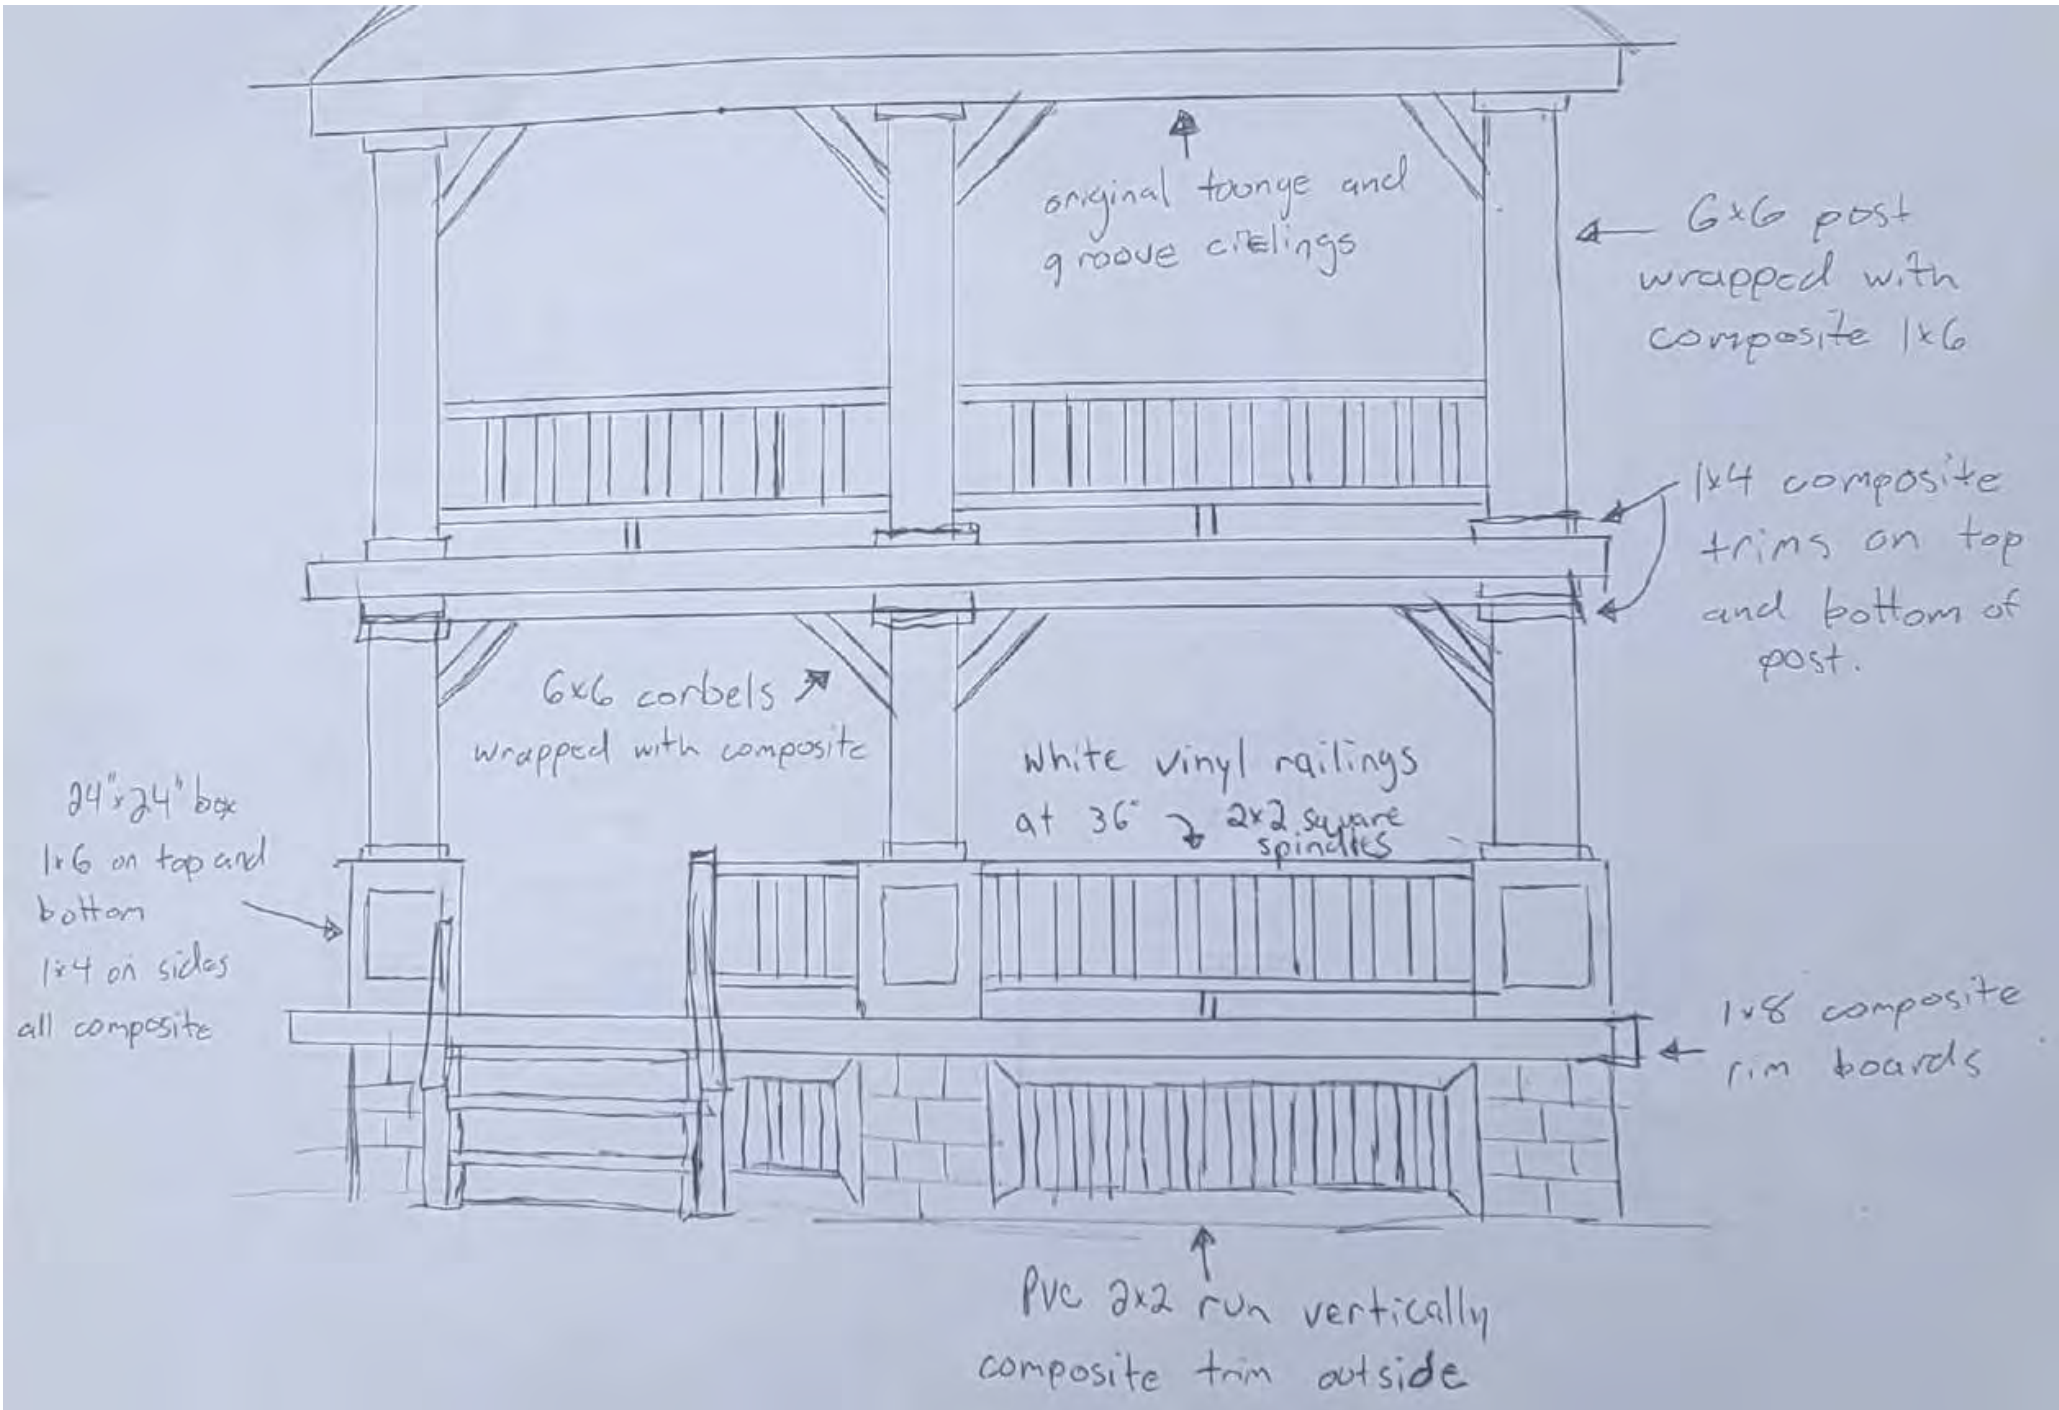 original toonge and
groove cielings
6x6 post
wrapped with
composite 1x6
1x4 composite
trims on top
and bottom of
post.
6x6 corbels
wrapped with composite
White vinyl railings
at 36" 2x2 square
spindles
24"x24" box
1x6 on top and
bottom
1x4 on sides
all composite
1x8 composite
rim boards
PVC 2x2 run vertically
composite trim outside